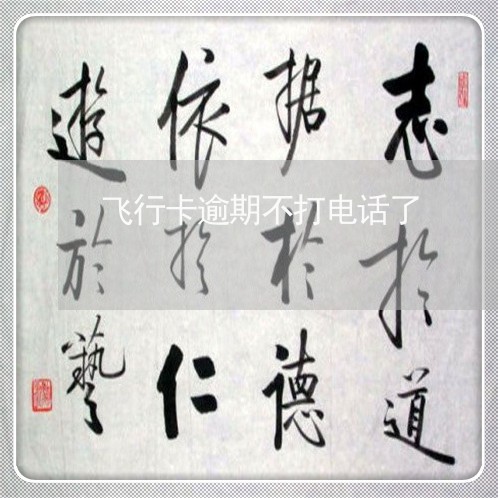 志於道
据於德
依於仁
遊於藝
飞行卡逾期不打电话了